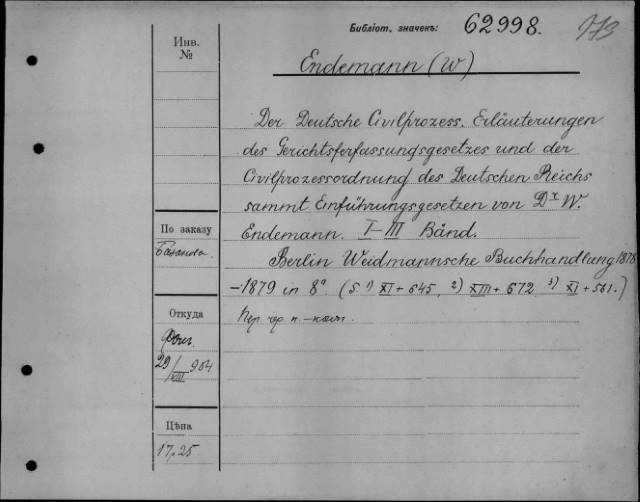 Библіот. значекъ: 62998. 173
Инв.
№
Endemann (W)
Der Deutsche Civilprozess. Erläuterungen
des Gerichtsferfassungsgesetzes und der
Civilprozessordnung des Deutschen Reichs
sammt Einführungsgesetzen von Dr W.
Endemann. I–III Bänd.
Berlin Weidmannsche Buchhandlung 1878
–1879 in 8° (S. 1) XI + 645, 2) XIII + 672 3) XI + 561.)
По заказу
Откуда
Пер. чер. к.
29/VIII 904
Цѣна
17,25